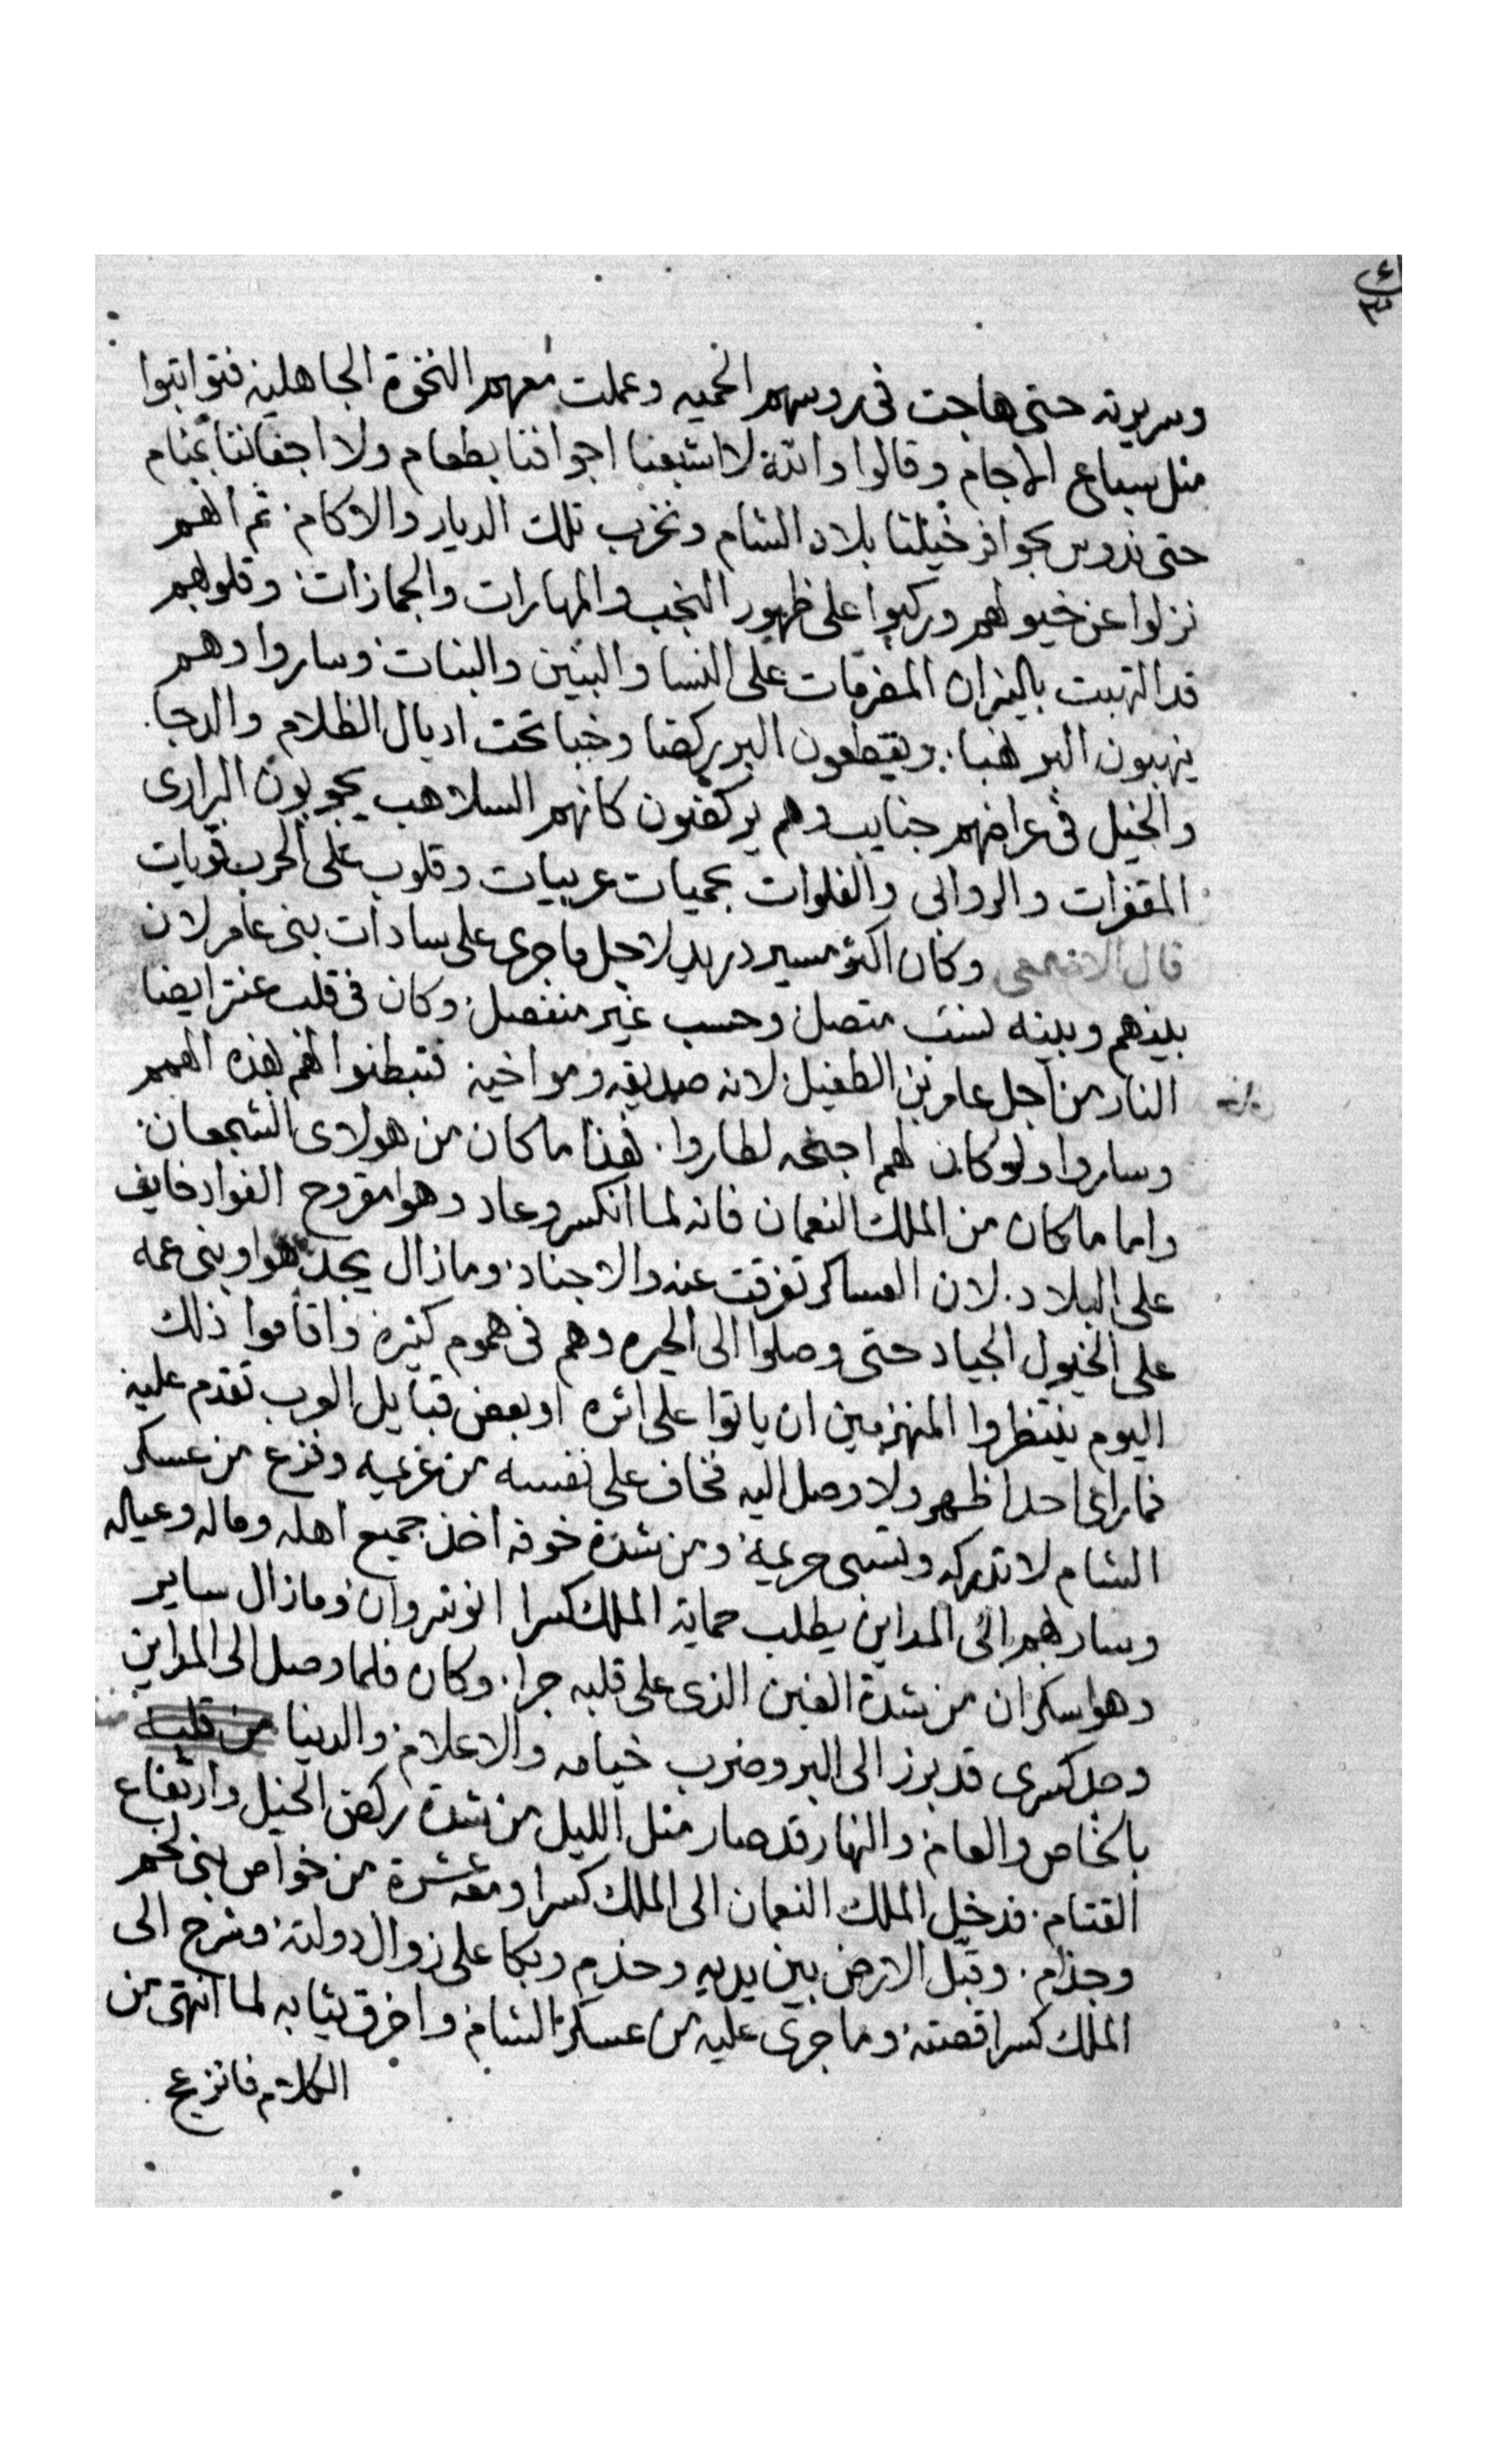 وسريرته حتى هاجت فى روسهم الحميه وعملت معهم النخوة الجاهليه فتواتبوا
مثل سباع الاجام وقالوا والله لا اشبعنا اجوافنا بطعام ولا اجفاننا بمنام
حتى ندوس بحوافر خيلنا بلاد الشام ونخرب تلك الديار والاكام ثم انهم
نزلوا عن خيولهم وركبوا على ظهور النجب والمهارات والجمازات وقلوبهم
قد التهبت بالنيران المضرمات على النسا والبنين والبنات وساروا وهم
ينهبون البر نهبا ويقطعون البر ركضا وخببا تحت اديال الظلام والدجا
والخيل فى عراضهم جنايب وهم يركضون كانهم السلاهب يجوبون البرارى
المقفرات والروابى والفلوات بحميات عربيات وقلوب على الحرب قويات
قال الاصمعى وكان اكثر مسير دريد لاجل ما جرى على سادات بنى عامر لان
بينهم وبينه نسب متصل وحسب غير منفصل وكان فى قلب عنتر ايضا
النار من اجل عامر بن الطفيل لانه صديقه ومواخيه فتبطنوا لهم بهذه الهمم
وساروا ولو كان لهم اجنحه لطاروا هذا ما كان من هولاى الشجعان
واما ما كان من الملك النعمان فانه لما انكسر وعاد وهوا مقروح الفواد خايف
على البلاد لان العساكر تفرقت عنه والاجناد ومازال يجد هوا وبنى عمه
على الخيول الجياد حتى وصلوا الى الحيره وهم فى هموم كثيره واقاموا ذلك
اليوم ينتظروا المنهزمين ان ياتوا على اثره او بعض قبايل العرب تقدم عليه
فما راى احدا ظهر ولا وصل اليه فخاف على نفسه من غريمه وفزع من عسكر
الشام لا تدركه وتسبى حريمه ومن شدة خوفه اخذ جميع اهله وماله وعياله
وسار بهم الى المداين يطلب حماية الملك كسرا انوشروان ومازال ساير
وهو سكران من شدة الغبن الذى على قلبه جرا وكان فلما وصل الى المداين
وجد كسرى قد برز الى البر وضرب خيامه والاعلام والدينا من قلبه
بالخاص والعام والنهار قد صار مثل الليل من شدة ركض الخيل وارتفاع
القتام فدخل الملك النعمان الى الملك كسرا ومعه عشرة من خواص بنى لخم
وجذام وقبّل الارض بين يديه وخدم وبكا على زوال دولته وشرح الى
الملك كسرا قصته وما جرى عليه من عسكر الشام واخرق ثيابه لما انتهى من
الكلام فانزعج